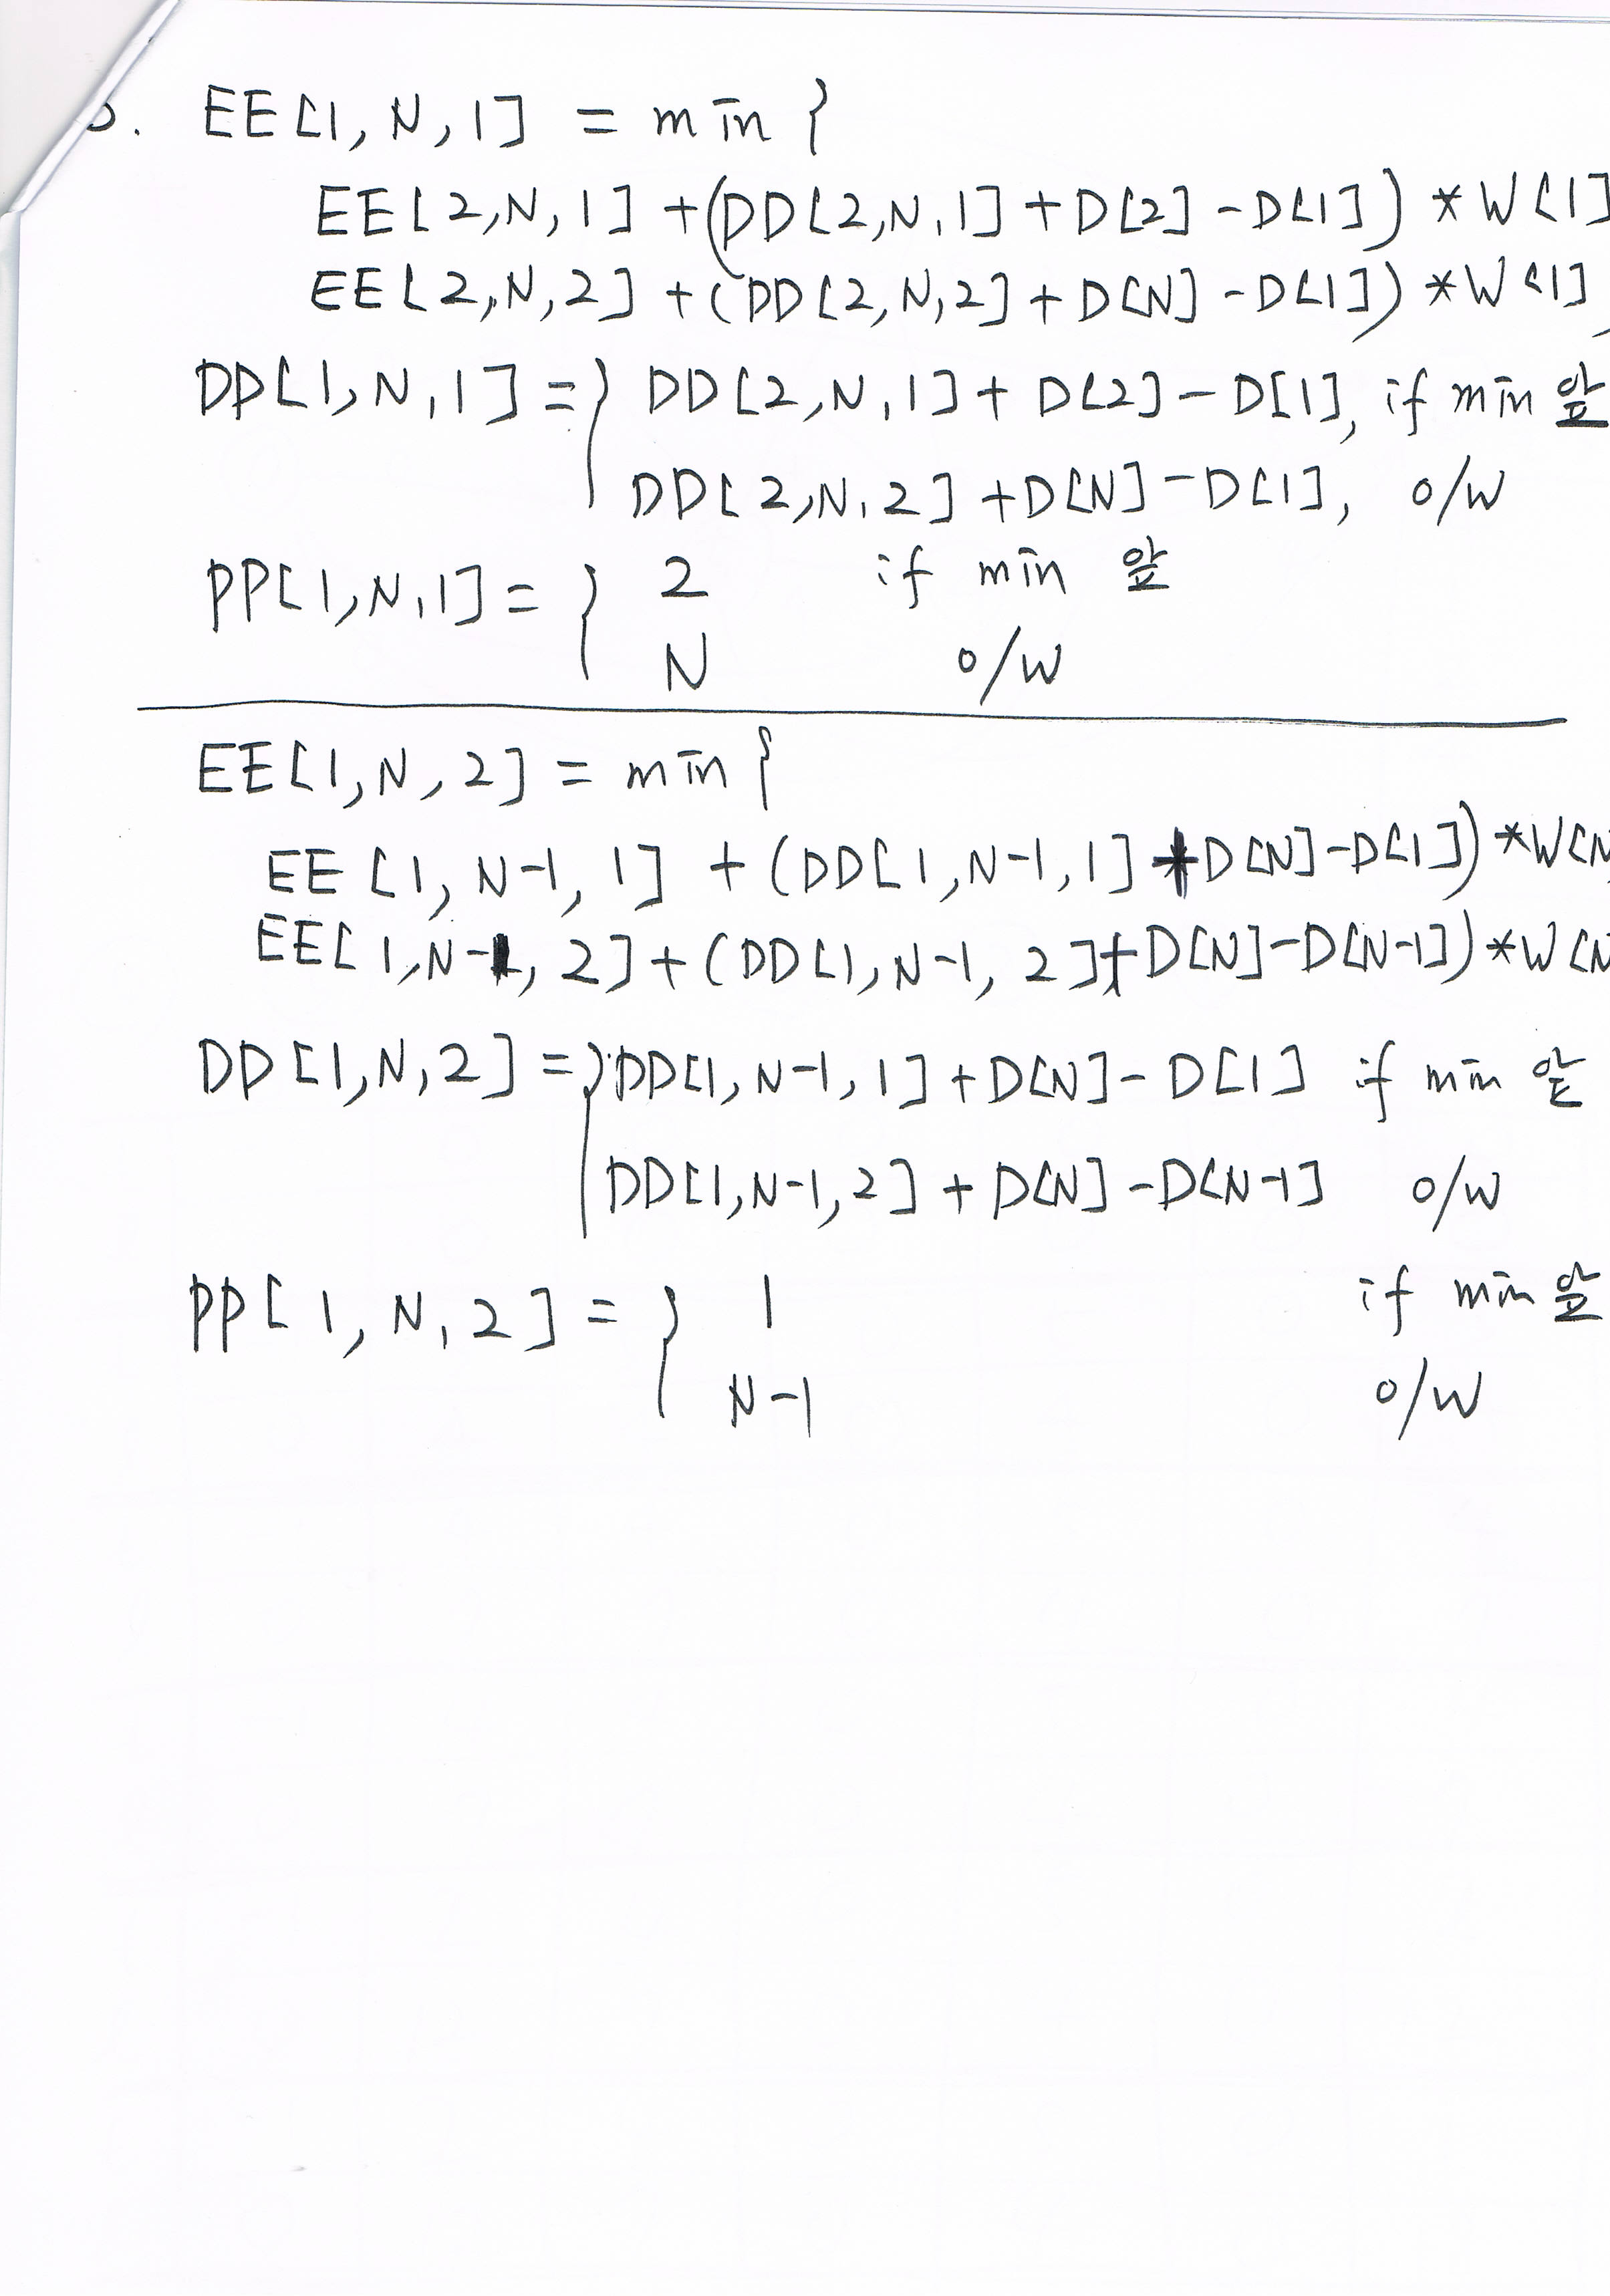 . EE[1, N, 1] = min {
EE[2,N,1] + (DD[2,N,1] + D[2] - D[1]) * W[1]
EE[2,N,2] + (DD[2,N,2] + D[N] - D[1]) * W[1]
DD[1,N,1] = { DD[2,N,1] + D[2] - D[1], if min 앞
DD[2,N,2] + D[N] - D[1], o/w
PP[1,N,1] = { 2 if min 앞
N o/w
EE[1,N,2] = min {
EE[1, N-1, 1] + (DD[1,N-1,1] + D[N] - D[1]) * W[N
EE[1,N-1, 2] + (DD[1,N-1, 2] + D[N] - D[N-1]) * W[N
DD[1,N,2] = { DD[1,N-1,1] + D[N] - D[1] if min 앞
DD[1,N-1,2] + D[N] - D[N-1] o/w
PP[1, N, 2] = { 1 if min 앞
N-1 o/w